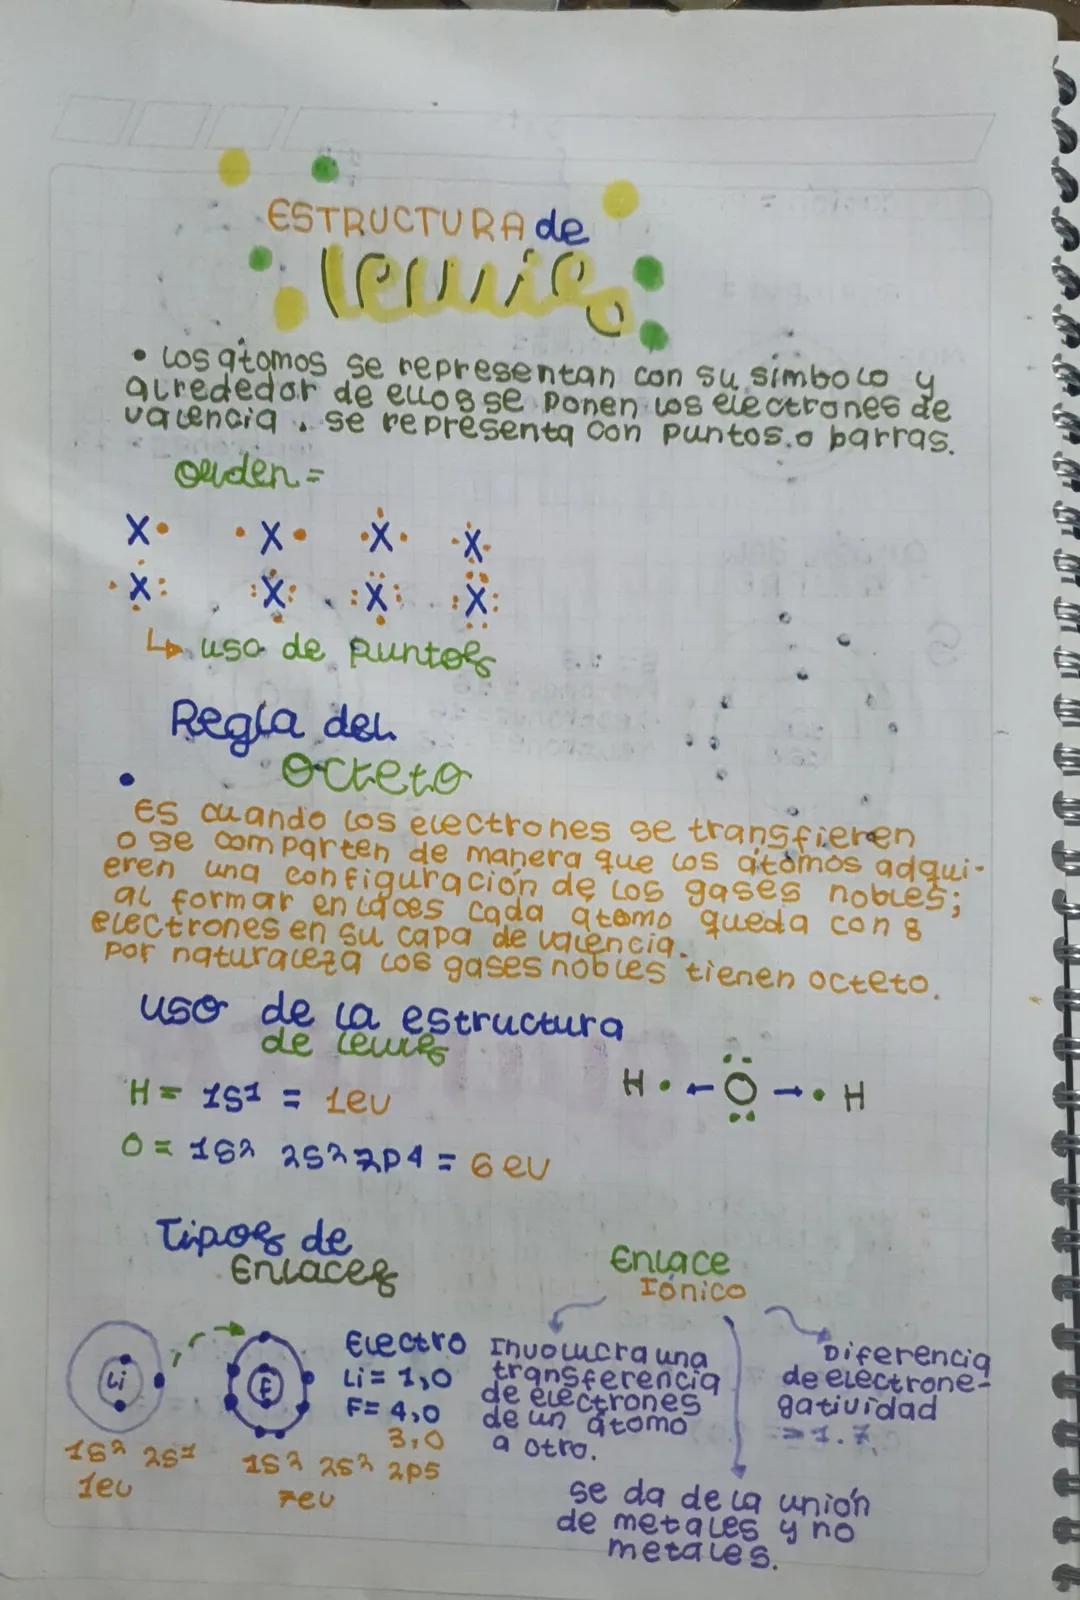 ESTRUCTURA de
lewis
• Los átomos se representan con su símbolo y
alrededor de ellos se ponen los electrones de
valencia. se representa con puntos o barras.
orden =
X• •X• •X• •X•
•X: :X: :X: :X:
↳ uso de puntos
Regla del
octeto
• Es cuando los electrones se transfieren
o se comparten de manera que los átomos adqui-
eren una configuración de los gases nobles;
al formar enlaces cada átomo queda con 8
electrones en su capa de valencia.
por naturaleza los gases nobles tienen octeto.
uso de la estructura
de lewis
H = 1s1 = 1ev
H • ← O → • H
O = 1s2 2s2 2p4 = 6 ev
Tipos de
Enlaces
Enlace
Iónico
Li
F
Electro
Li = 1,0
F = 4,0
3,0
1s2 2s1
1ev
1s2 2s2 2p5
7ev
Involucra una
transferencia
de electrones
de un átomo
a otro.
Diferencia
de electrone-
gatividad
=> 1.7
se da de la unión
de metales y no
metales.